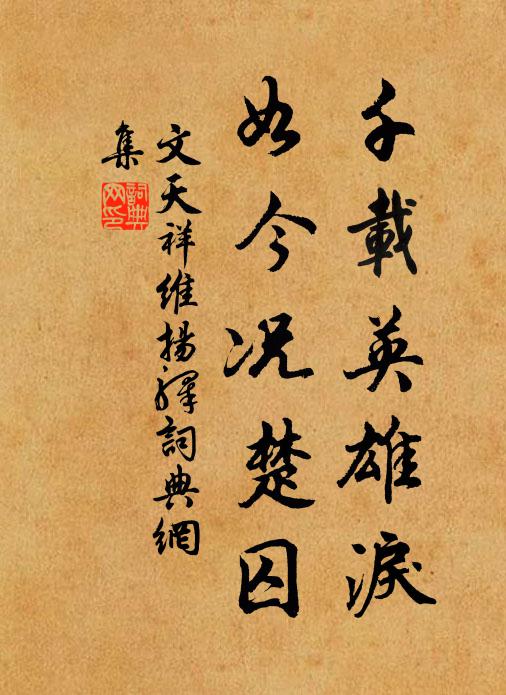 千載英雄淚
如今況楚囚
文天祥維揚驛詞典網
集
詞典网印